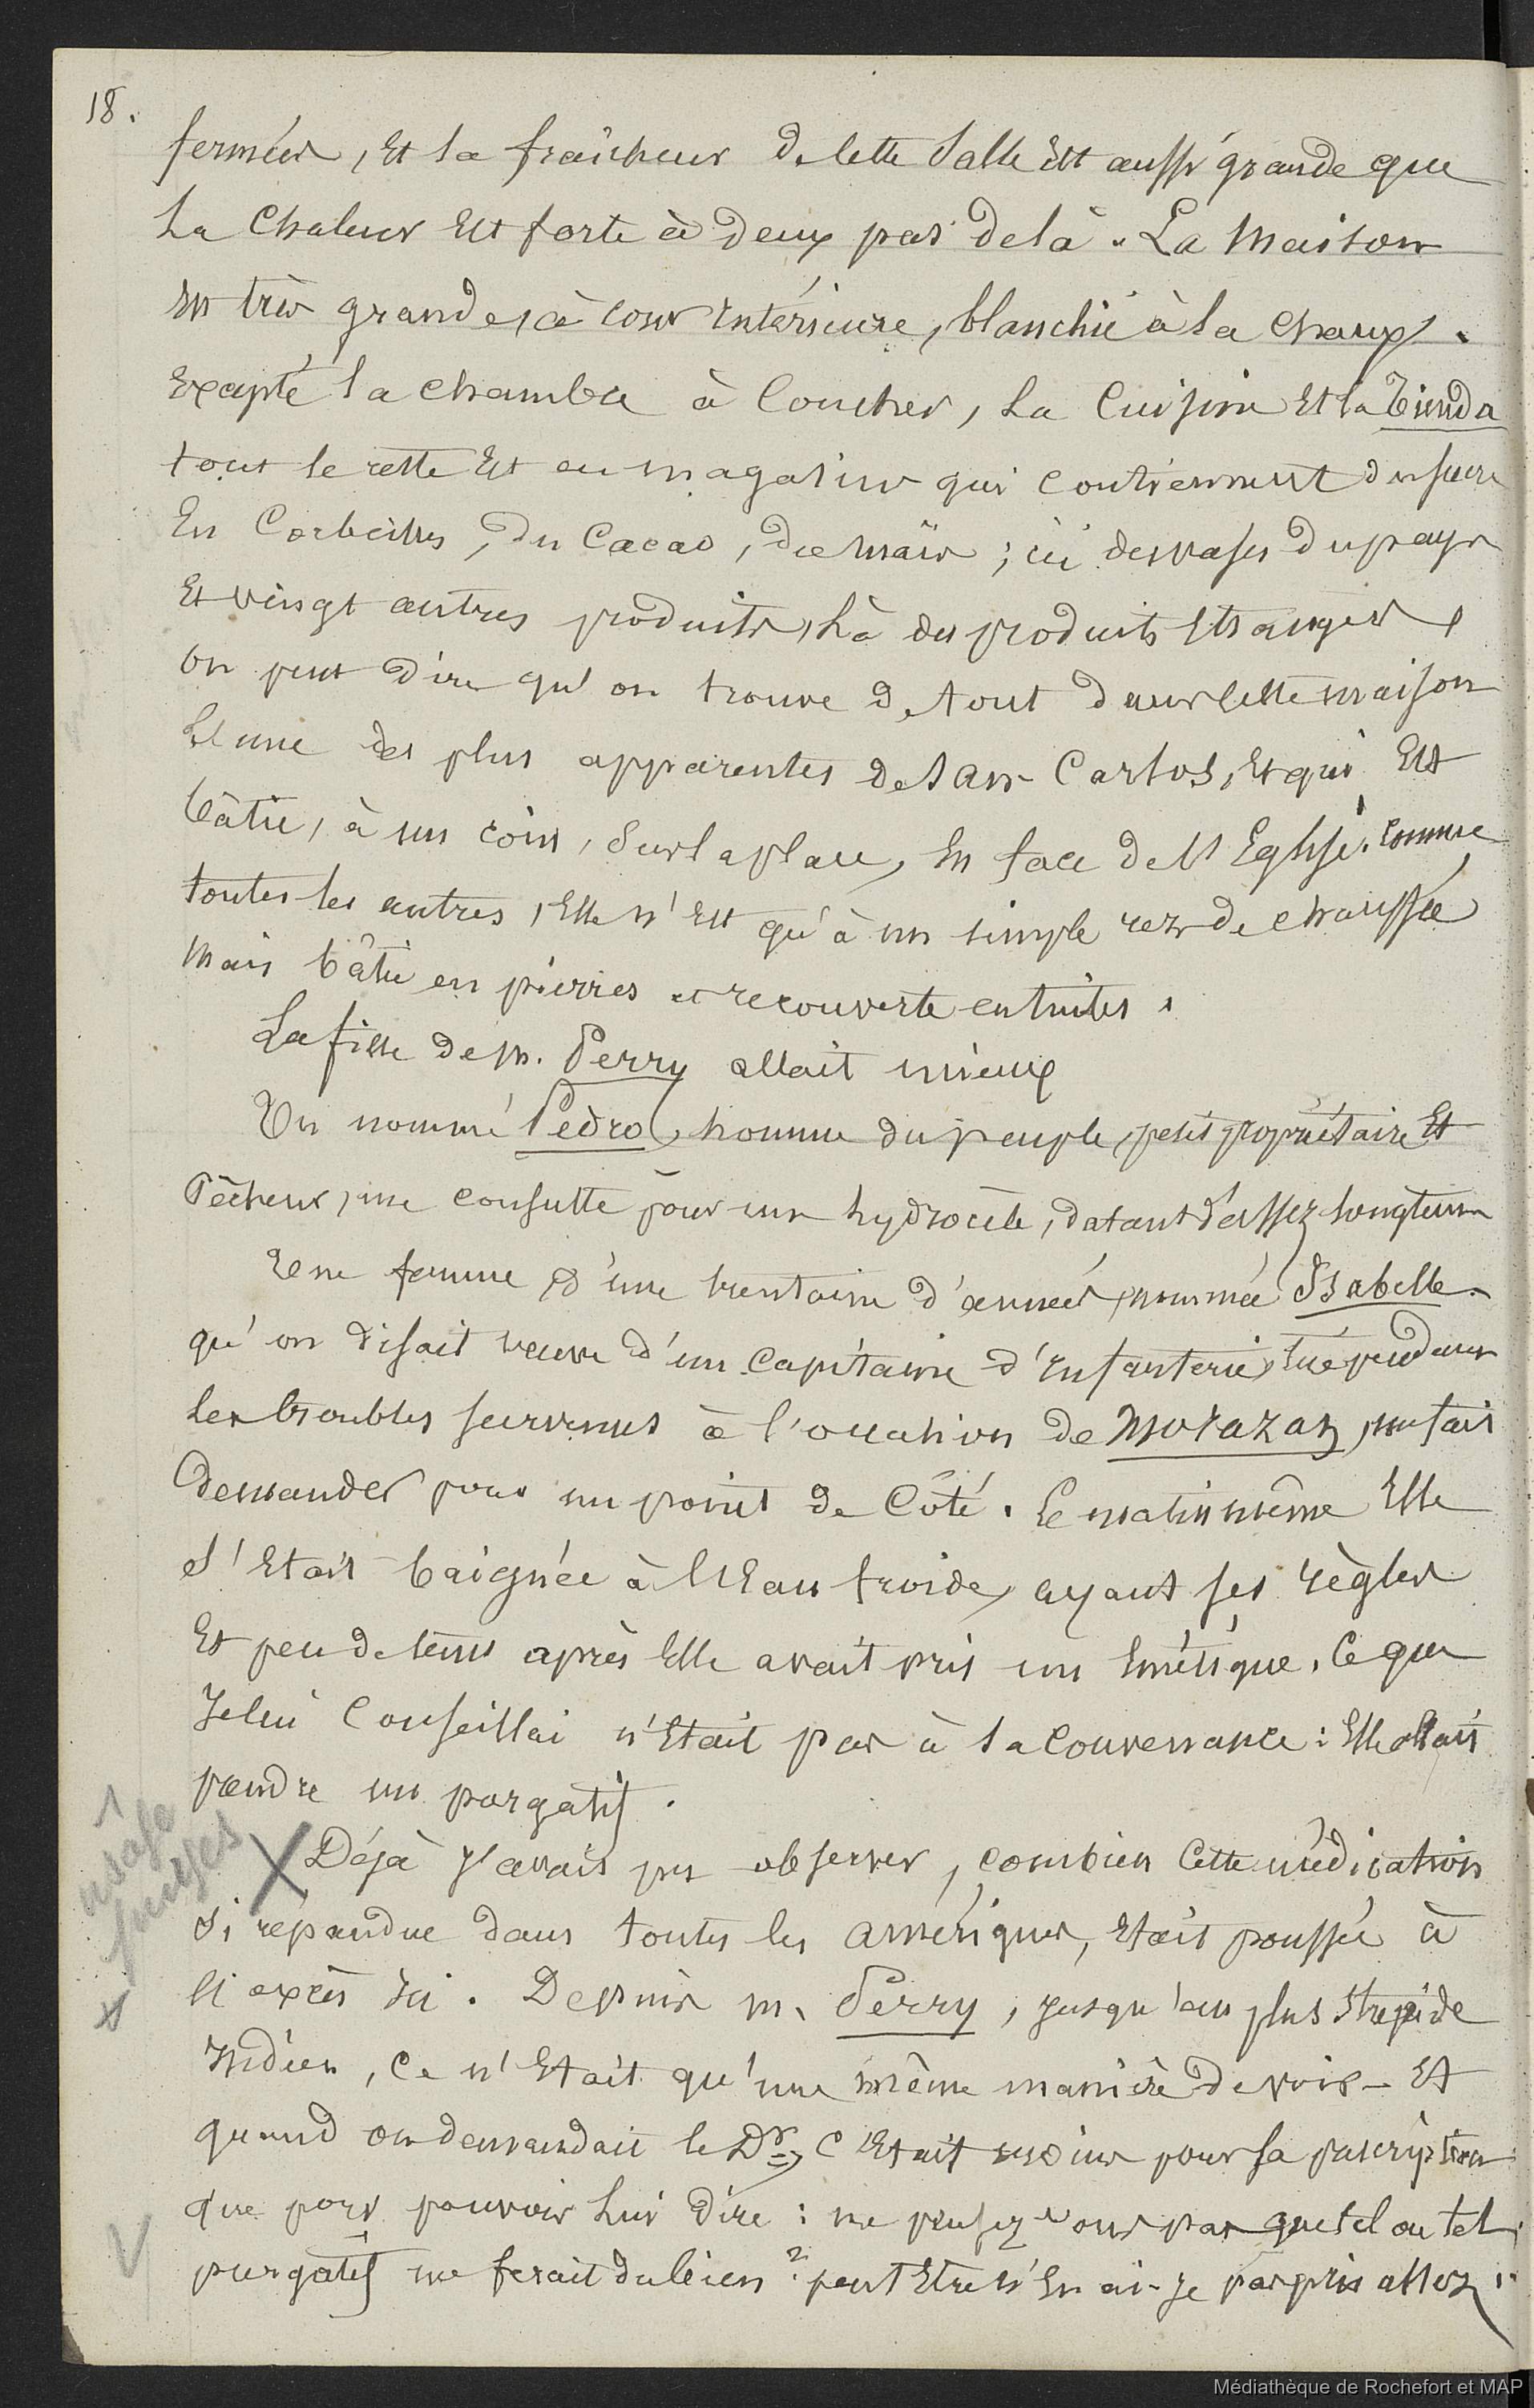 18.
fermées, Et la fraîcheur de cette salle Est aussi grande que
La Chaleur Est forte à deux pas de là. La Maison
Est très grande, à cour Intérieure, blanchie à la chaux.
Excepté la chambre à Coucher, La Cuisine Et la Tienda
tout le reste Est en magasins qui contiennent du sucre
En Corbeilles, du Cacao, du maïs ; ici des vases du pays
Et vingt autres produits, Là des produits Etrangers,
on peut dire qu'on trouve de tout dans cette maison
L'une des plus apparentes de San Carlos, Et qui Est
bâtie, à un coin, Sur la place, En face de l'Eglise. Comme
toutes les autres, Elle n'Est qu'à un simple rez de chaussée
Mais bâtie en pierres et recouverte en tuiles.
La fille de M. Perry allait mieux
Un nommé Pédro, homme du peuple, petit propriétaire Et
Pêcheur, me consulte pour un hydrocèle, datant d'assez longtems
Une femme d'une trentaine d'années, nommée Isabelle
qu'on disait veuve d'un Capitaine d'Infanterie, tué pendant
Les troubles survenus à l'occasion de Morazan, me fait
Demander pour un point de Côté. Le matin même Elle
s'Etait baignée à l'Eau froide, ayant ses règles
Et peu de tems après Elle avait pris un Emétique. Ce que
Je lui Conseillai n'Etait pas à sa convenance : Elle allait
prendre un purgatif.
usage
purges
X Déjà J'avais pu observer, combien Cette médication
si répandue dans toutes les amériques, Etait poussée à
l'excès Ici. Depuis M. Perry, jusqu'au plus stupide
Indien, Ce n'Etait qu'une même manière de voir – Et
quand on demandait le Dr, C'Etait moins pour sa prescription
que pour pouvoir Lui dire : ne pensez vous pas que tel ou tel
purgatif me ferait du bien ? peut Etre n'En ai-je pas pris assez.